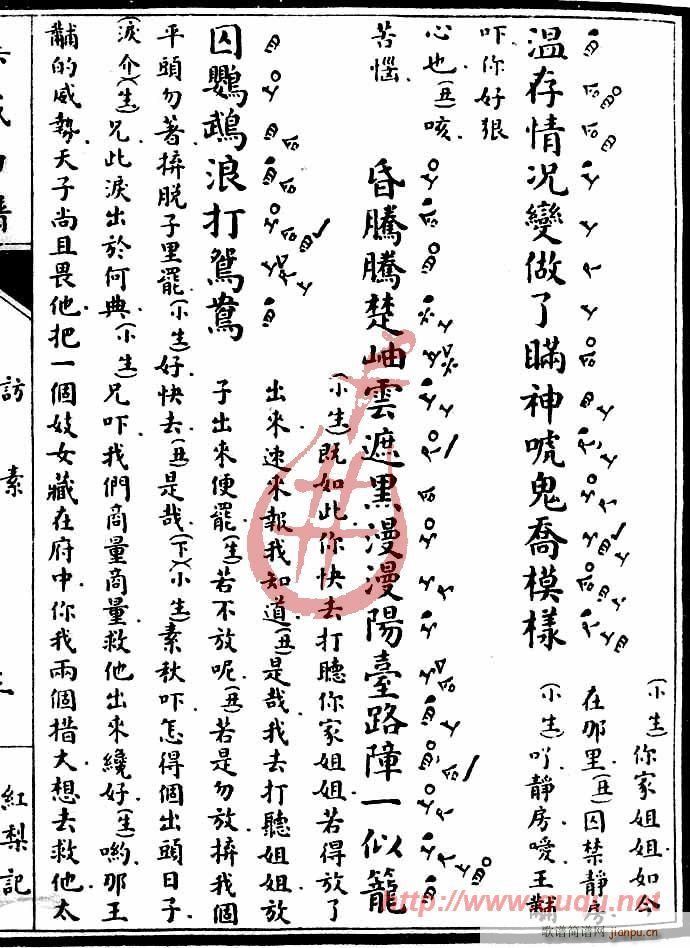 温存情况變做了瞞神唬鬼喬模樣
(小生)你家姐姐如今
在那里(丑)囚禁靜房
(小生)吖靜房噯王黼
吓你好狠
心也(丑)咳
苦惱
昏騰騰楚岫雲遮黑漫漫陽臺路障一似籠
囚鸚鵡浪打鴛鴦
(小生)既如此你快去打聽你家姐姐若得放了
出來速來報我知道(丑)是哉我去打聽姐姐放
子出來便罷(生)若不放呢(丑)若是勿放拚我個
平頭勿著拚脱子里罷(小生)好快去(丑)是哉(下)(小生)素秋吓怎得個出頭日子
(淚介)(生)兄此淚出於何典(小生)兄吓我們商量商量救他出來纔好(生)喲那王
黼的威勢天子尚且畏他把一個妓女藏在府中你我兩個措大想去救他太
訪素
紅梨記
http://www.ququ.net
歌谱简谱网
jianpu.cn